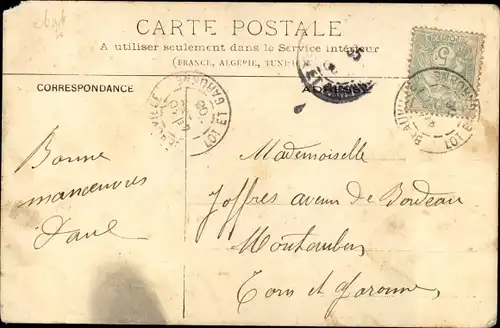 CARTE POSTALE
A utiliser seulement dans le Service intérieur
(FRANCE, ALGERIE, TUNISIE)
CORRESPONDANCE
ADRESSE
LOT ET GARONNE
LOT ET
5
Bonne
manœuvres
Mademoiselle
Joffres avenu de Bordeau
Montauban
Tarn et Garonne